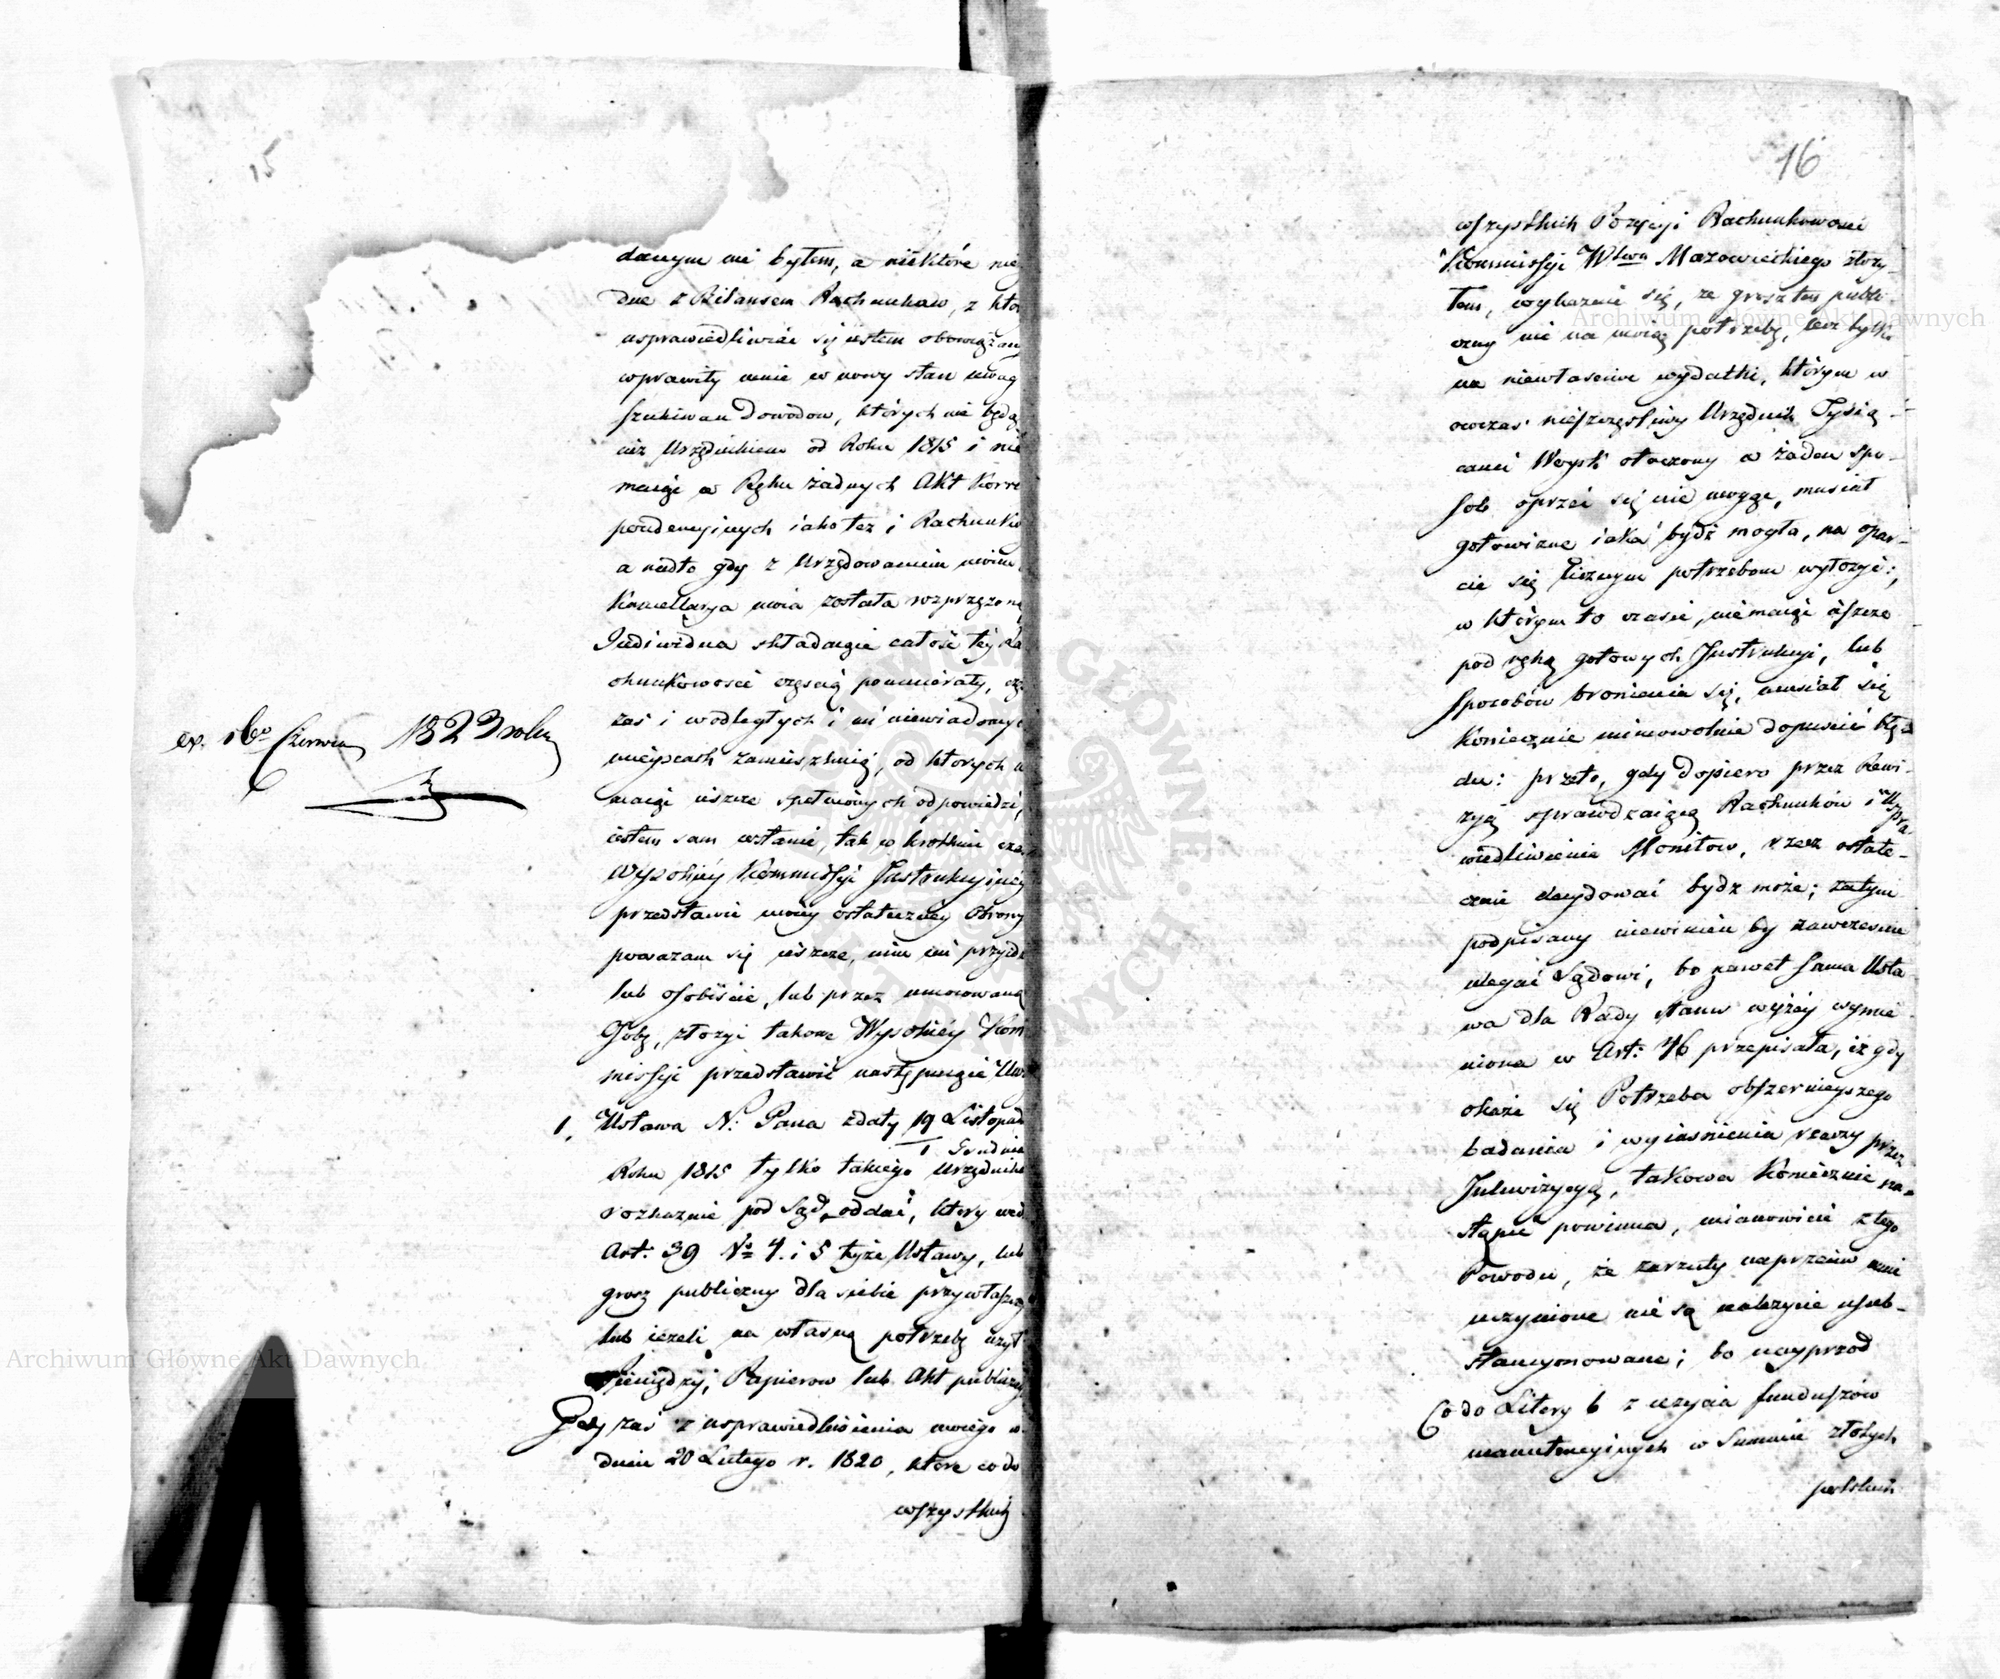 15
danym nie byłem, a niektóre nie
dne z Bilansem Rachunkow, z któ
usprawiedliwiać się iestem obowiązany
wprawiły mnie w nowy stan
szukiwan Dowodow, których nie będą
niż Urzędnikiem od Roku 1815 i nie
maiąc w Ręku żadnych Akt Korre
pondencyinych iako też i Rachunko
a nadto gdy z Urzędowaniem moim
Kancellarya moia została rozprzężoną
Indiwidua składaiące całość téj Ra
chunkowosci częscią poumierały, czę
zas i w odległych i mi niewiadomych
mieyscach zamieszkuią, od których n
maiąc ieszcze spełnionych odpowiedzi,
iestem sam wstanie, tak w krotkim cza
Wysokiéy Kommissyi Instrukcyinéy
przedstawić moiey ostateczney Obrony
poważam się ieszcze, nim mi przyidz
lub osobiście, lub przez umocowaną
Osobę, złożyć takowe Wysokiéy Kom
missyi przedstawić następuiące Uw
1. Ustawa N: Pana zdaty 19 Listopada
1 Grudnia
Roku 1815 tylko takiego Urzędnika
rozkaznie pod Sąd oddać, który wed.
Art: 39 No 4. i 5 tyże Ustawy, lub
grosz publiczny dla siebie przywłaszcz
lub ieżeli na własną potrzebę użył
Pieniędzy, Papierow lub Akt publiczny
Gdy zaś z usprawiedliwienia moiego w
dniu 20 Lutego r. 1820, które co do
wszystkich
ex. 16o Czerwca 1823 roku
16
wszystkich Pozycyi Rachunkowosci
Kommissyi Wtwa Mazowieckiego złoży
łem, wykazuie się, że grosz ten publi
czny nie na moią potrzebę, lecz tylko
na niewłaściwe wydatki, którym w
owczas nieszczęsliwy Urzędnik Tysią
cami Woysk otoczony w żaden spo
sob oprzeć się nie mogąc, musiał
gotowiznę iaka bydź mogła, na opar
cie się licznym potrzebom wyłożyć;
w którym to czasie, niemaiąc ieszcze
pod ręką gotowych Instrukcyi, lub
sposobów bronienia się, musiał się
koniecznie mimowolnie dopuscić błę
du: przeto, gdy dopiero przez Rewi
zyą sprawdzaiącą Rachunków i Uspra
wiedliwienia Monitow, rzecz ostate
cznie decydować bydz może; zatym
podpisany niewinien by zawczesnie
ulegać Sądowi, bo nawet sama Usta
wa dla Rady Stanu wyżéy wymie
niona w Art: 46 przepisała, iż gdy
okaże się Potrzeba obszernieyszego
badania i wyiasnienia rzeczy przez
Inkwizycyą, takowa koniecznie na
stąpić powinna, mianowicie z tego
Powodu, że zarzuty naprzeciw mnie
uczynione nie są należycie usub
stancyonowane; bo nayprzod
Co do Litery b z użycia funduszów
manutencyinych w Summie złotych
polskich
Archiwum Główne Akt Dawnych
Archiwum Główne Akt Dawnych